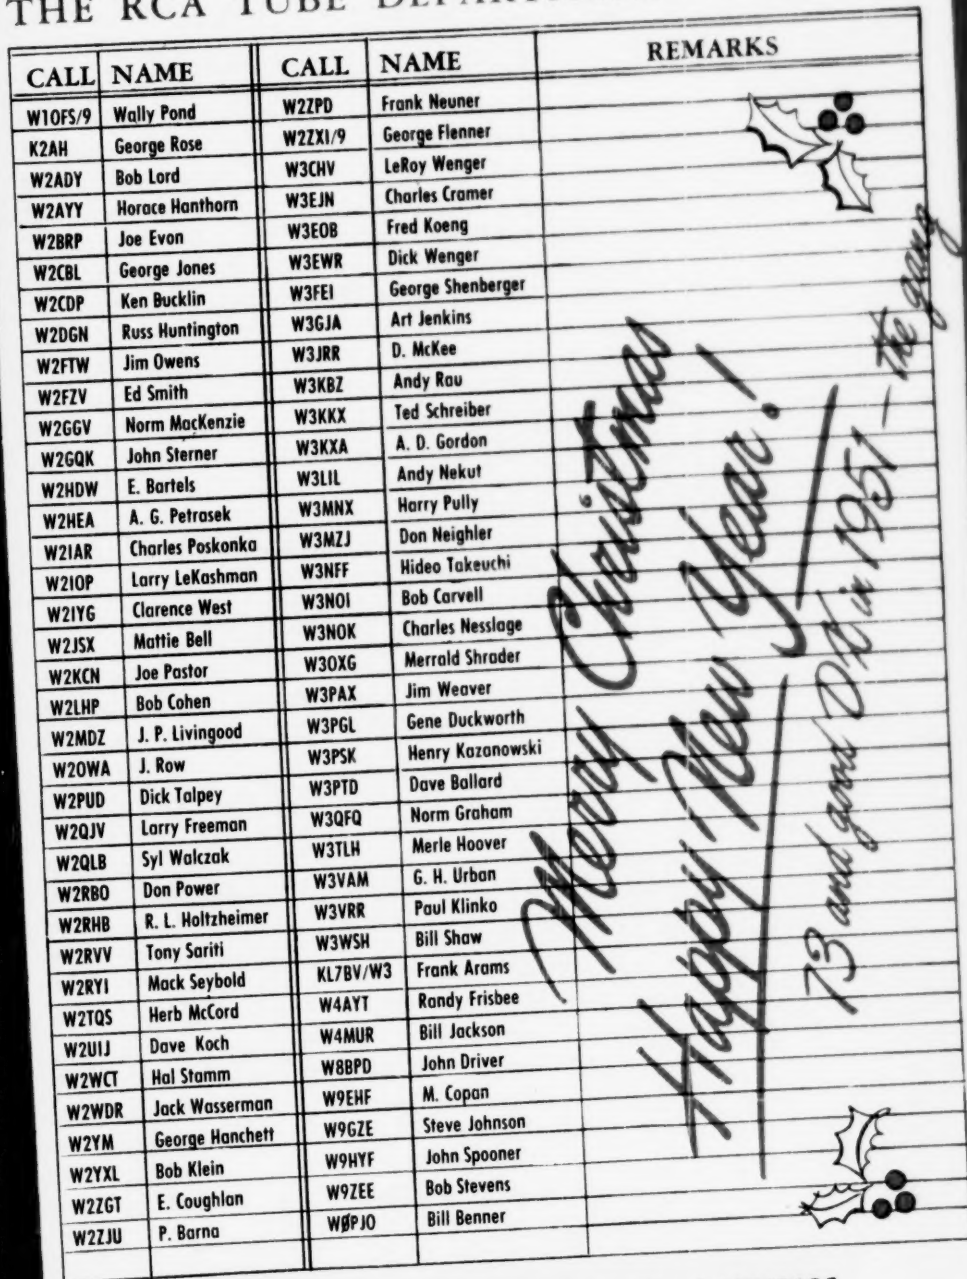 THE RCA TUBE
CALL NAME CALL NAME REMARKS
W1OFS/9 Wally Pond W2ZPD Frank Neuner
K2AH George Rose W2ZXI/9 George Flenner
W2ADY Bob Lord W3CHV LeRoy Wenger
W2AYY Horace Hanthorn W3EJN Charles Cramer
W2BRP Joe Evon W3EOB Fred Koeng
W2CBL George Jones W3EWR Dick Wenger
W2CDP Ken Bucklin W3FEI George Shenberger
W2DGN Russ Huntington W3GJA Art Jenkins
W2FTW Jim Owens W3JRR D. McKee
W2FZV Ed Smith W3KBZ Andy Rau
W2GGV Norm MacKenzie W3KKX Ted Schreiber
W2GQK John Sterner W3KXA A. D. Gordon
W2HDW E. Bartels W3LIL Andy Nekut
W2HEA A. G. Petrasek W3MNX Harry Pully
W2IAR Charles Poskonka W3MZJ Don Neighler
W2IOP Larry LeKashman W3NFF Hideo Takeuchi
W2IYG Clarence West W3NOI Bob Carvell
W2JSX Mattie Bell W3NOK Charles Nesslage
W2KCN Joe Pastor W3OXG Merrald Shrader
W2LHP Bob Cohen W3PAX Jim Weaver
W2MDZ J. P. Livingood W3PGL Gene Duckworth
W2OWA J. Row W3PSK Henry Kazanowski
W2PUD Dick Talpey W3PTD Dave Ballard
W2QJV Larry Freeman W3QFQ Norm Graham
W2QLB Syl Walczak W3TLH Merle Hoover
W2RBO Don Power W3VAM G. H. Urban
W2RHB R. L. Holtzheimer W3VRR Paul Klinko
W2RVV Tony Sariti W3WSH Bill Shaw
W2RYI Mack Seybold KL7BV/W3 Frank Arams
W2TQS Herb McCord W4AYT Randy Frisbee
W2UIJ Dave Koch W4MUR Bill Jackson
W2WCT Hal Stamm W8BPD John Driver
W2WDR Jack Wasserman W9EHF M. Copan
W2YM George Hanchett W9GZE Steve Johnson
W2YXL Bob Klein W9HYF John Spooner
W2ZGT E. Coughlan W9ZEE Bob Stevens
W2ZJU P. Barna WØPJO Bill Benner
Merry Christmas
Happy New Year!
73 and good DX in 1951 - the gang